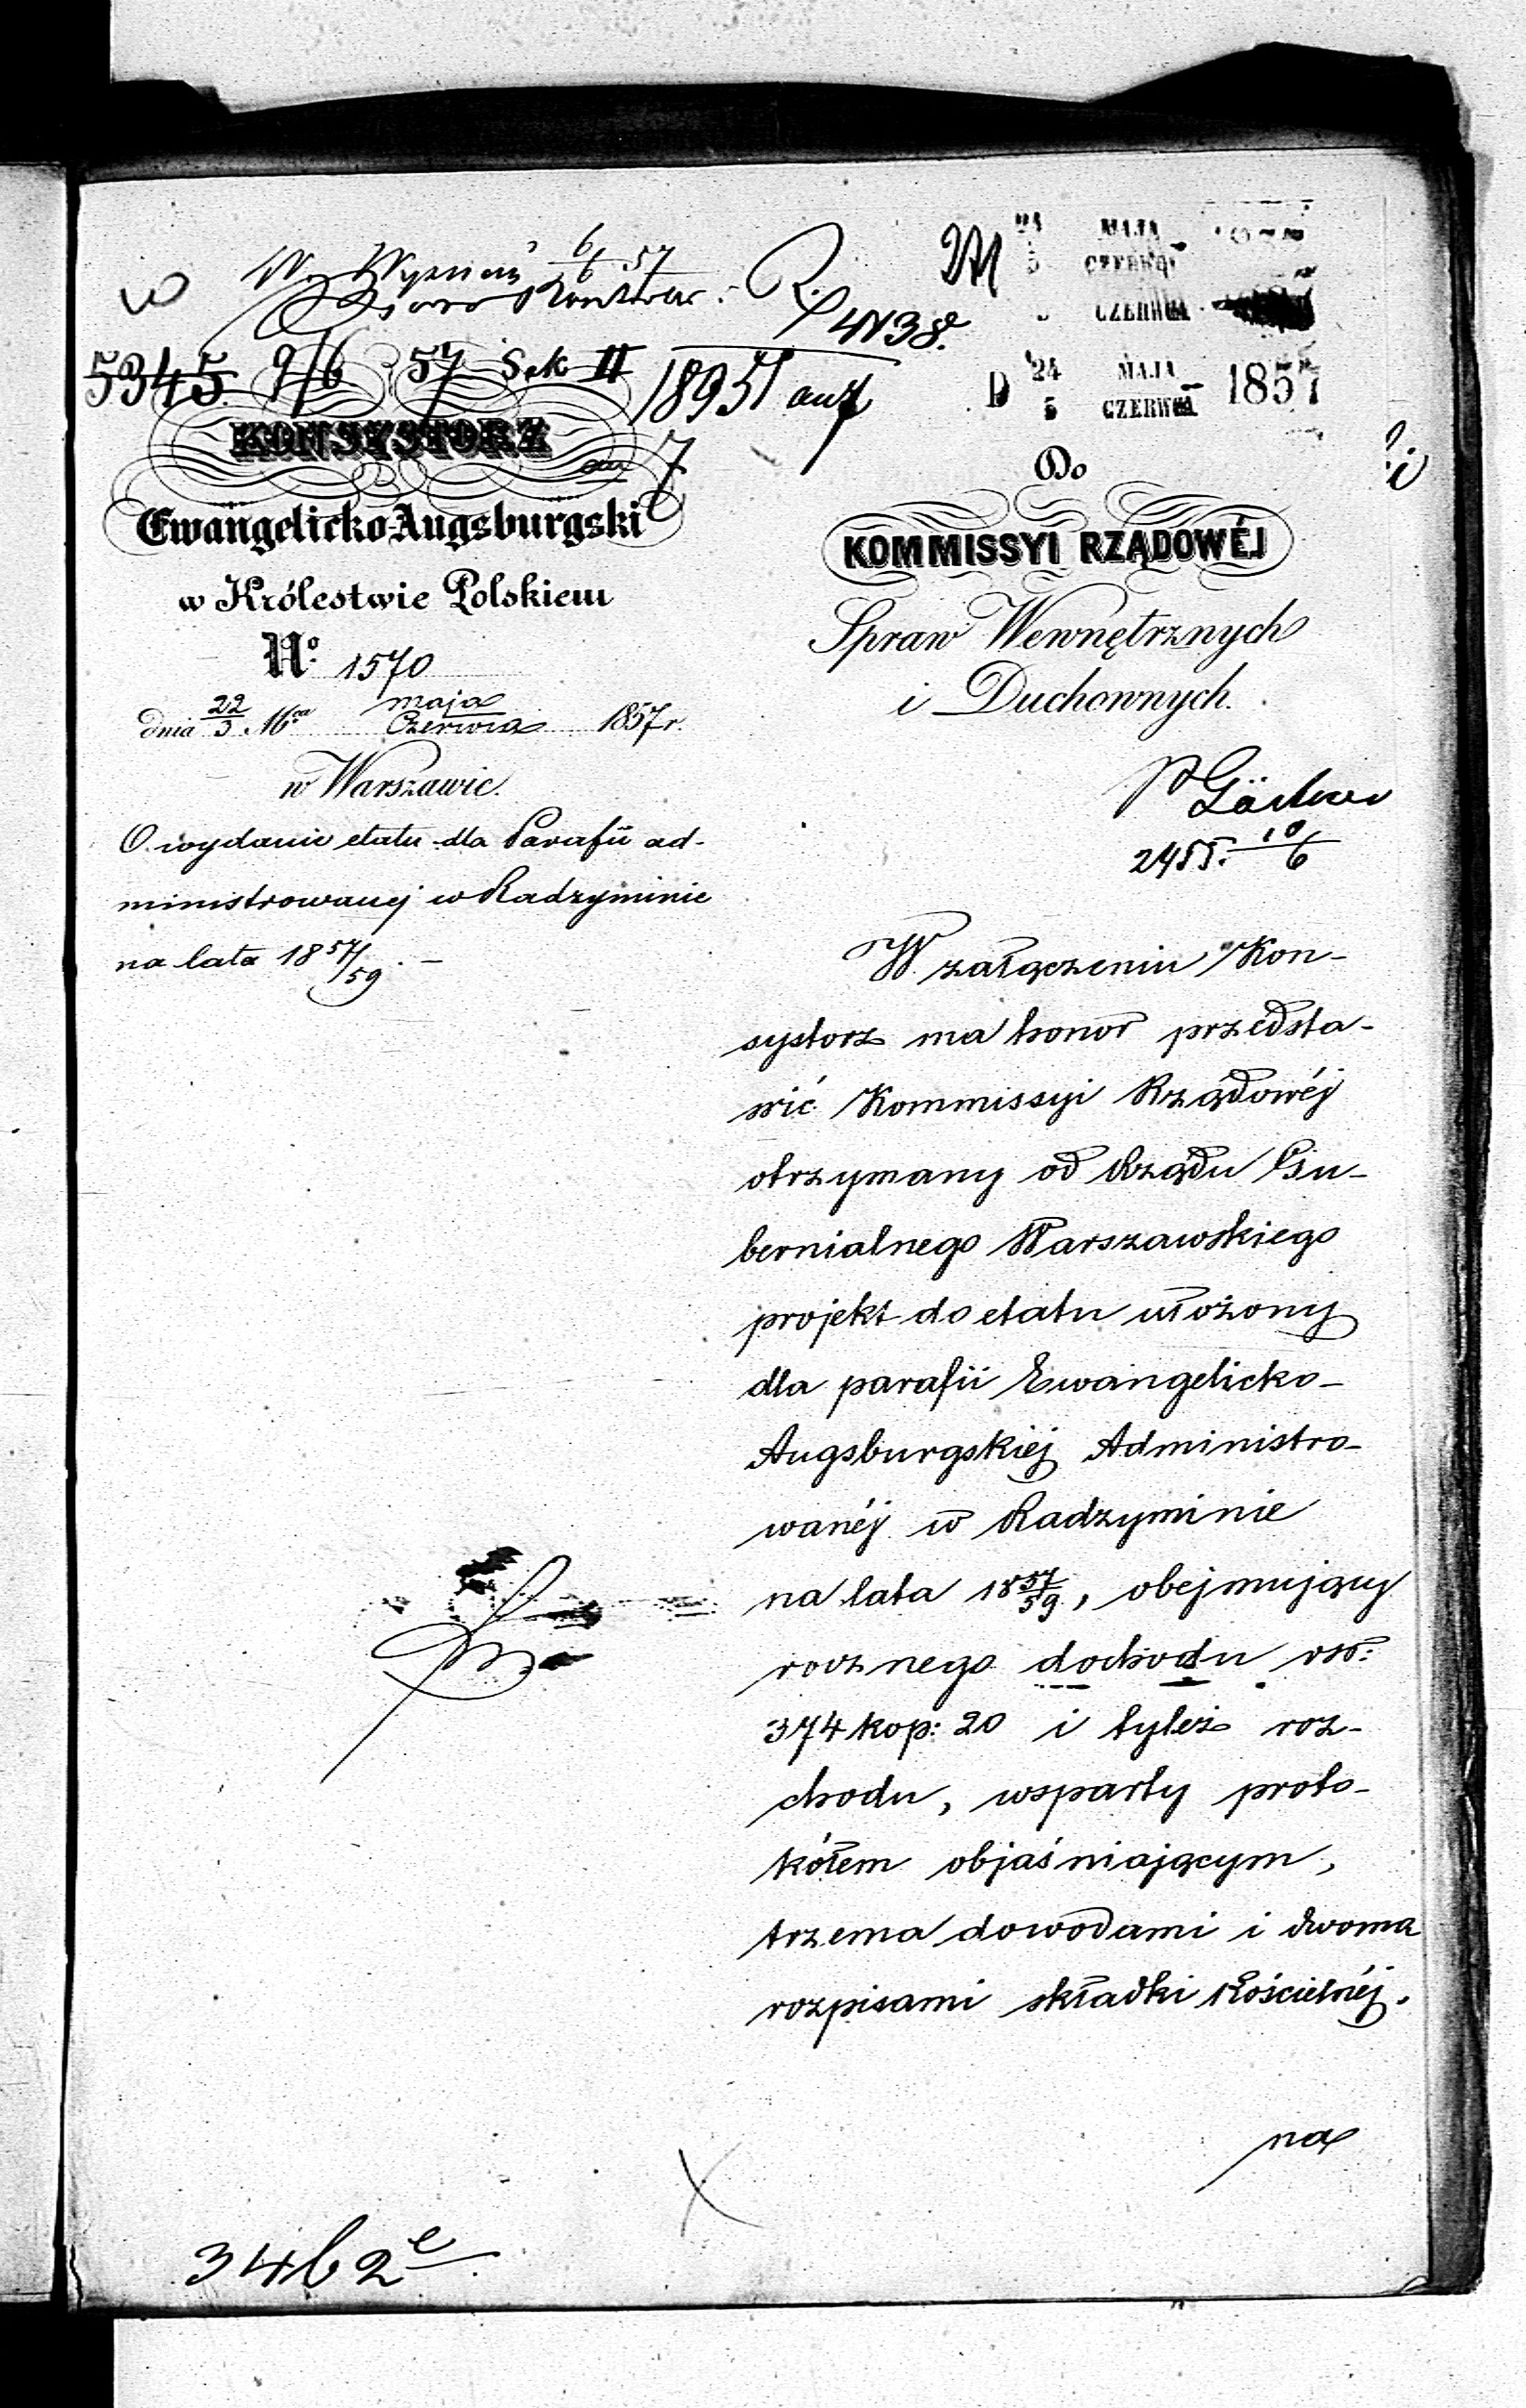 6/6 57
R.
4438.
5345. 9/6 57 Sek II
18951
24 MAJA
5 CZERWCA
CZERWCA
D 24 MAJA 1857
5 CZERWCA
KONSYSTORZ
Ewangelicko Augsburgski
w Królestwie Polskiem
No. 1570
dnia 22/3 Mca maja/Czerwca 1857 r.
w Warszawie.
O wydanie etatu dla Parafii ad-
ministrowanej w Radzyminie
na lata 1857/59. —
Do
KOMMISSYI RZĄDOWÉJ
Spraw Wewnętrznych
i Duchownych.
2455. 10/6
W załączeniu Kon-
systorz ma honor przedsta-
wić Kommissyi Rządowéj
otrzymany od Rządu Gu-
bernialnego Warszawskiego
projekt do etatu ułożony
dla parafii Ewangelicko-
Augsburgskiéj Administro-
wanéj w Radzyminie
na lata 1857/59, obejmujący
rocznego dochodu rsr:
374 kop: 20 i tyleż roz-
chodu, wsparty proto-
kółem objaśniającym,
trzema dowodami i dwoma
rozpisami składki Kościelnéj.
na
34b2e